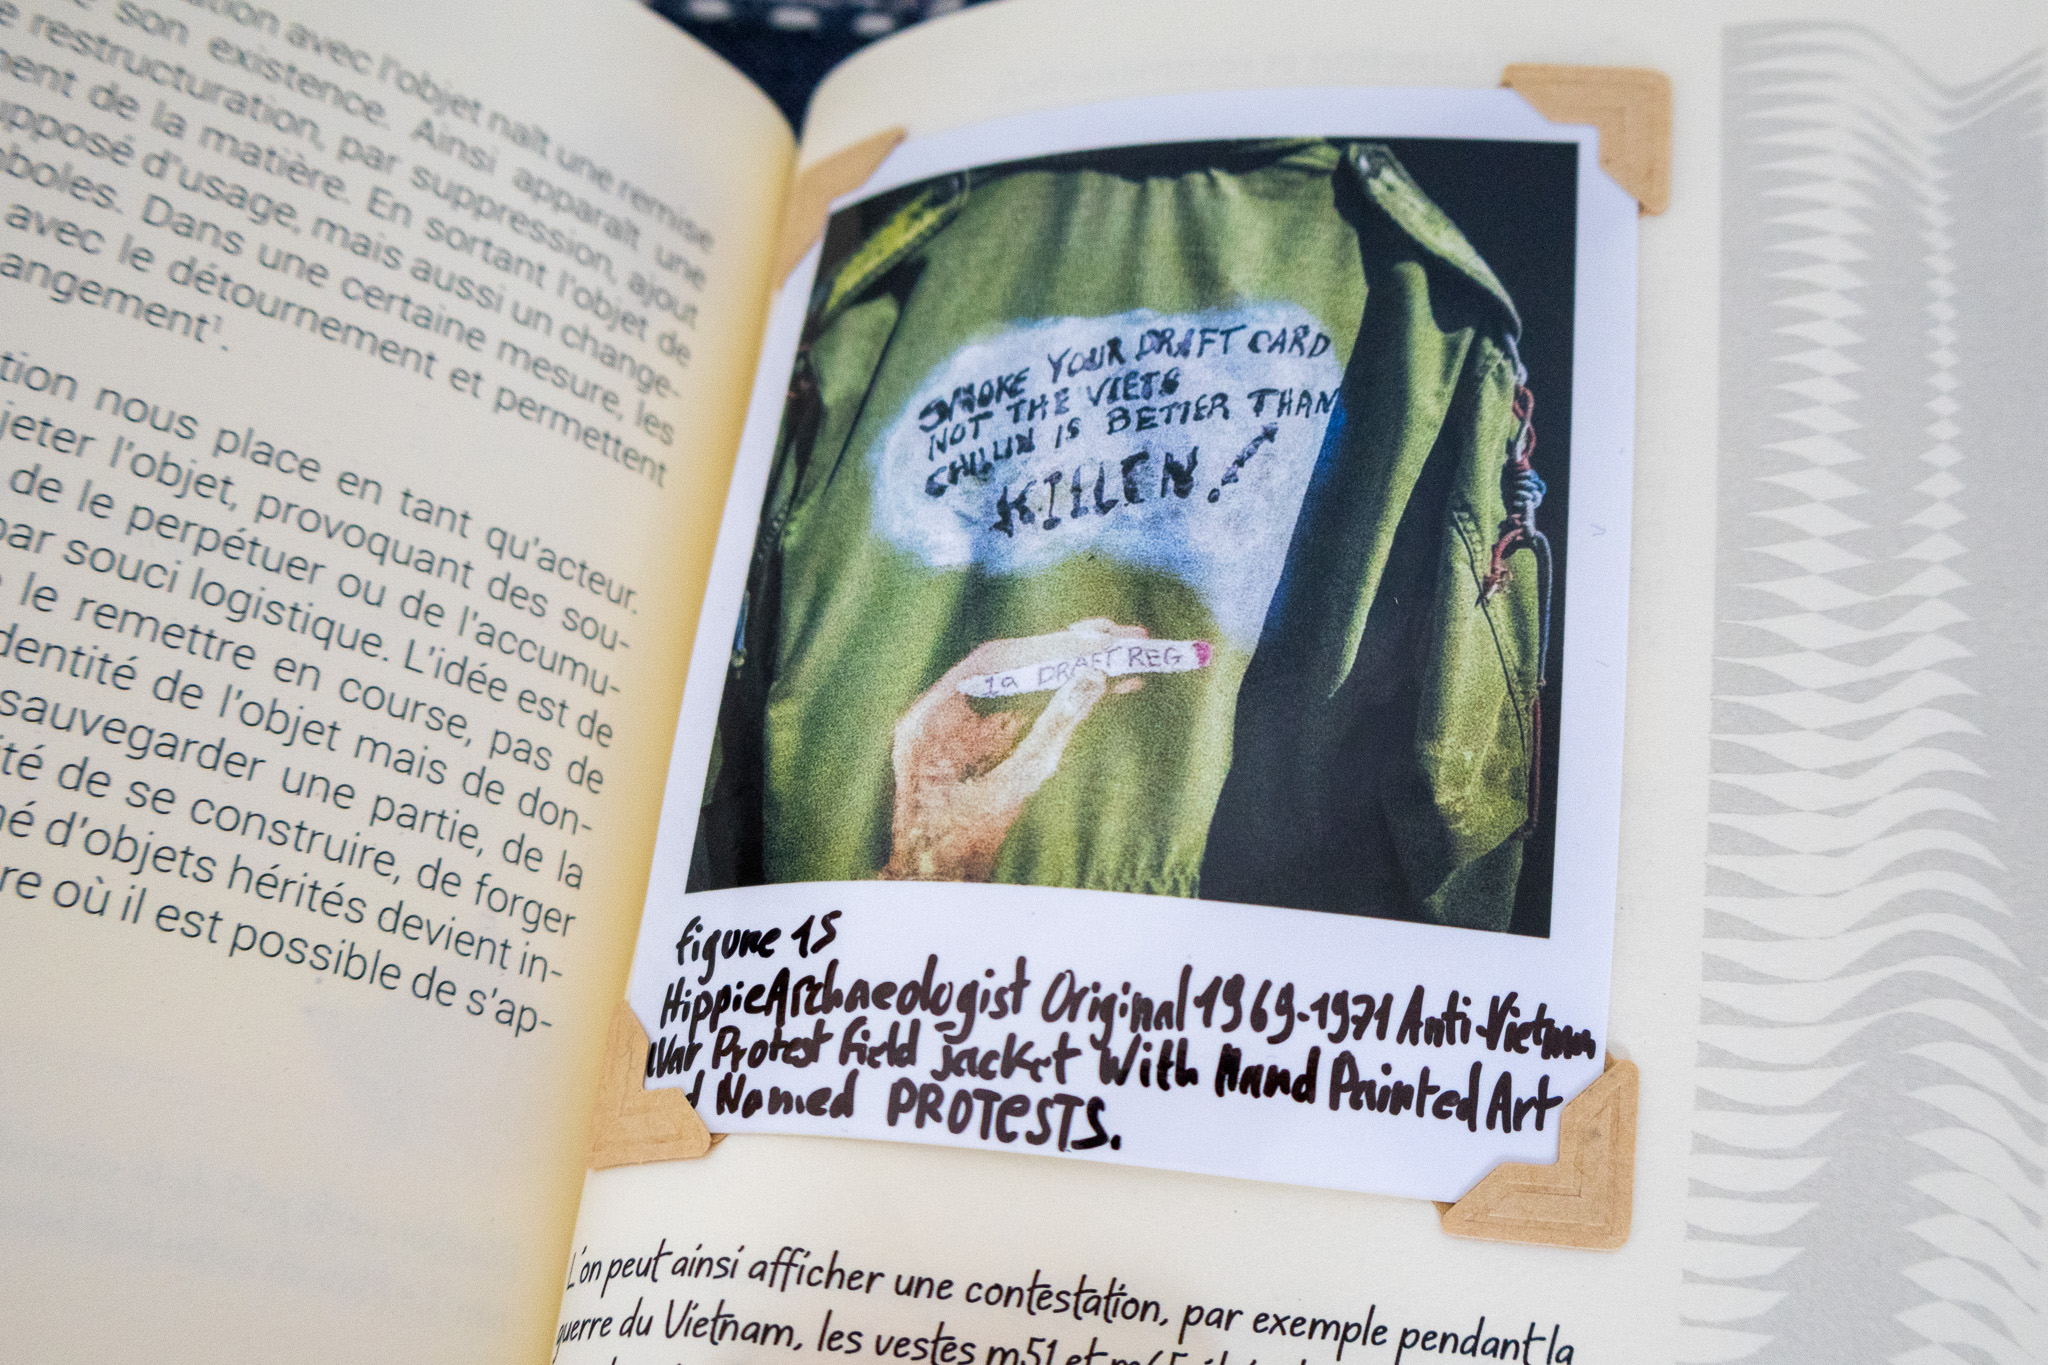 avec l'objet naît une remise
son existence. Ainsi apparaît une
restructuration, par suppression, ajout
de la matière. En sortant l'objet de
d'usage, mais aussi un change-
Dans une certaine mesure, les
avec le détournement et permettent
angement¹.
tion nous place en tant qu'acteur.
jeter l'objet, provoquant des sou-
de le perpétuer ou de l'accumu-
par souci logistique. L'idée est de
le remettre en course, pas de
dentité de l'objet mais de don-
sauvegarder une partie, de la
té de se construire, de forger
d'objets hérités devient in-
re où il est possible de s'ap-
SMOKE YOUR DRAFT CARD
NOT THE VIETS
CHILLIN IS BETTER THAN
KILLEN!
1a DRAFT REG
figure 15
HippieArchaeologist Original 1969-1971 Anti-Vietnam
War Protest Field jacket With Hand Painted Art
d Named PROTESTS.
L'on peut ainsi afficher une contestation, par exemple pendant la
guerre du Vietnam, les vestes m51 et